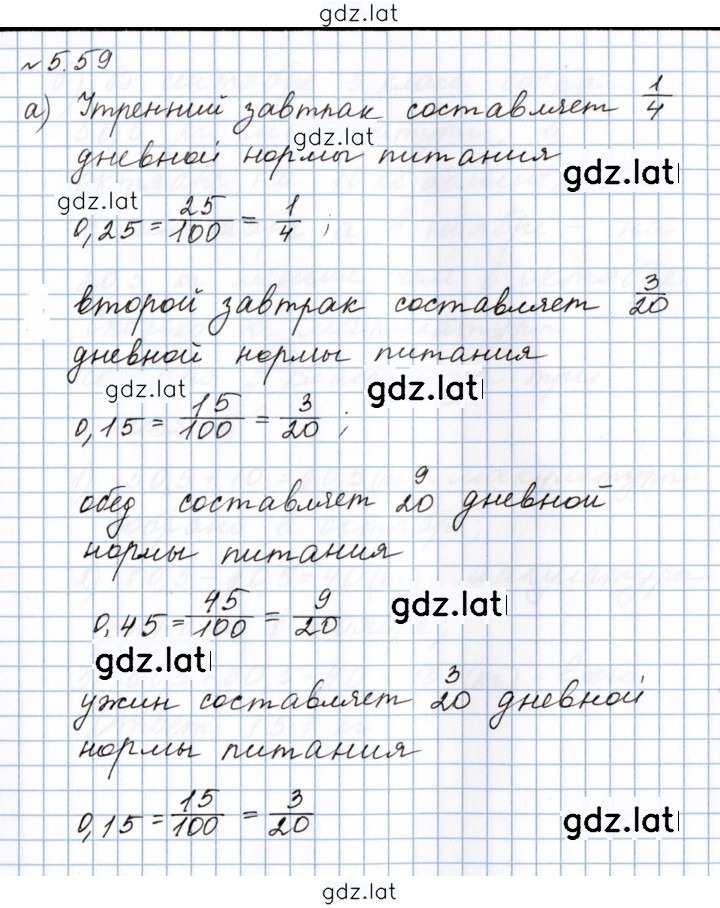 gdz.lat
№ 5.59
а) Утренний завтрак составляет 1/4
gdz.lat
дневной нормы питания
gdz.lat
gdz.lat
0,25 = 25/100 = 1/4 ;
второй завтрак составляет 3/20
дневной нормы питания
gdz.lat
gdz.lat
0,15 = 15/100 = 3/20 ;
обед составляет 9/20 дневной
нормы питания
0,45 = 45/100 = 9/20
gdz.lat
gdz.lat
ужин составляет 3/20 дневной
нормы питания
0,15 = 15/100 = 3/20
gdz.lat
gdz.lat